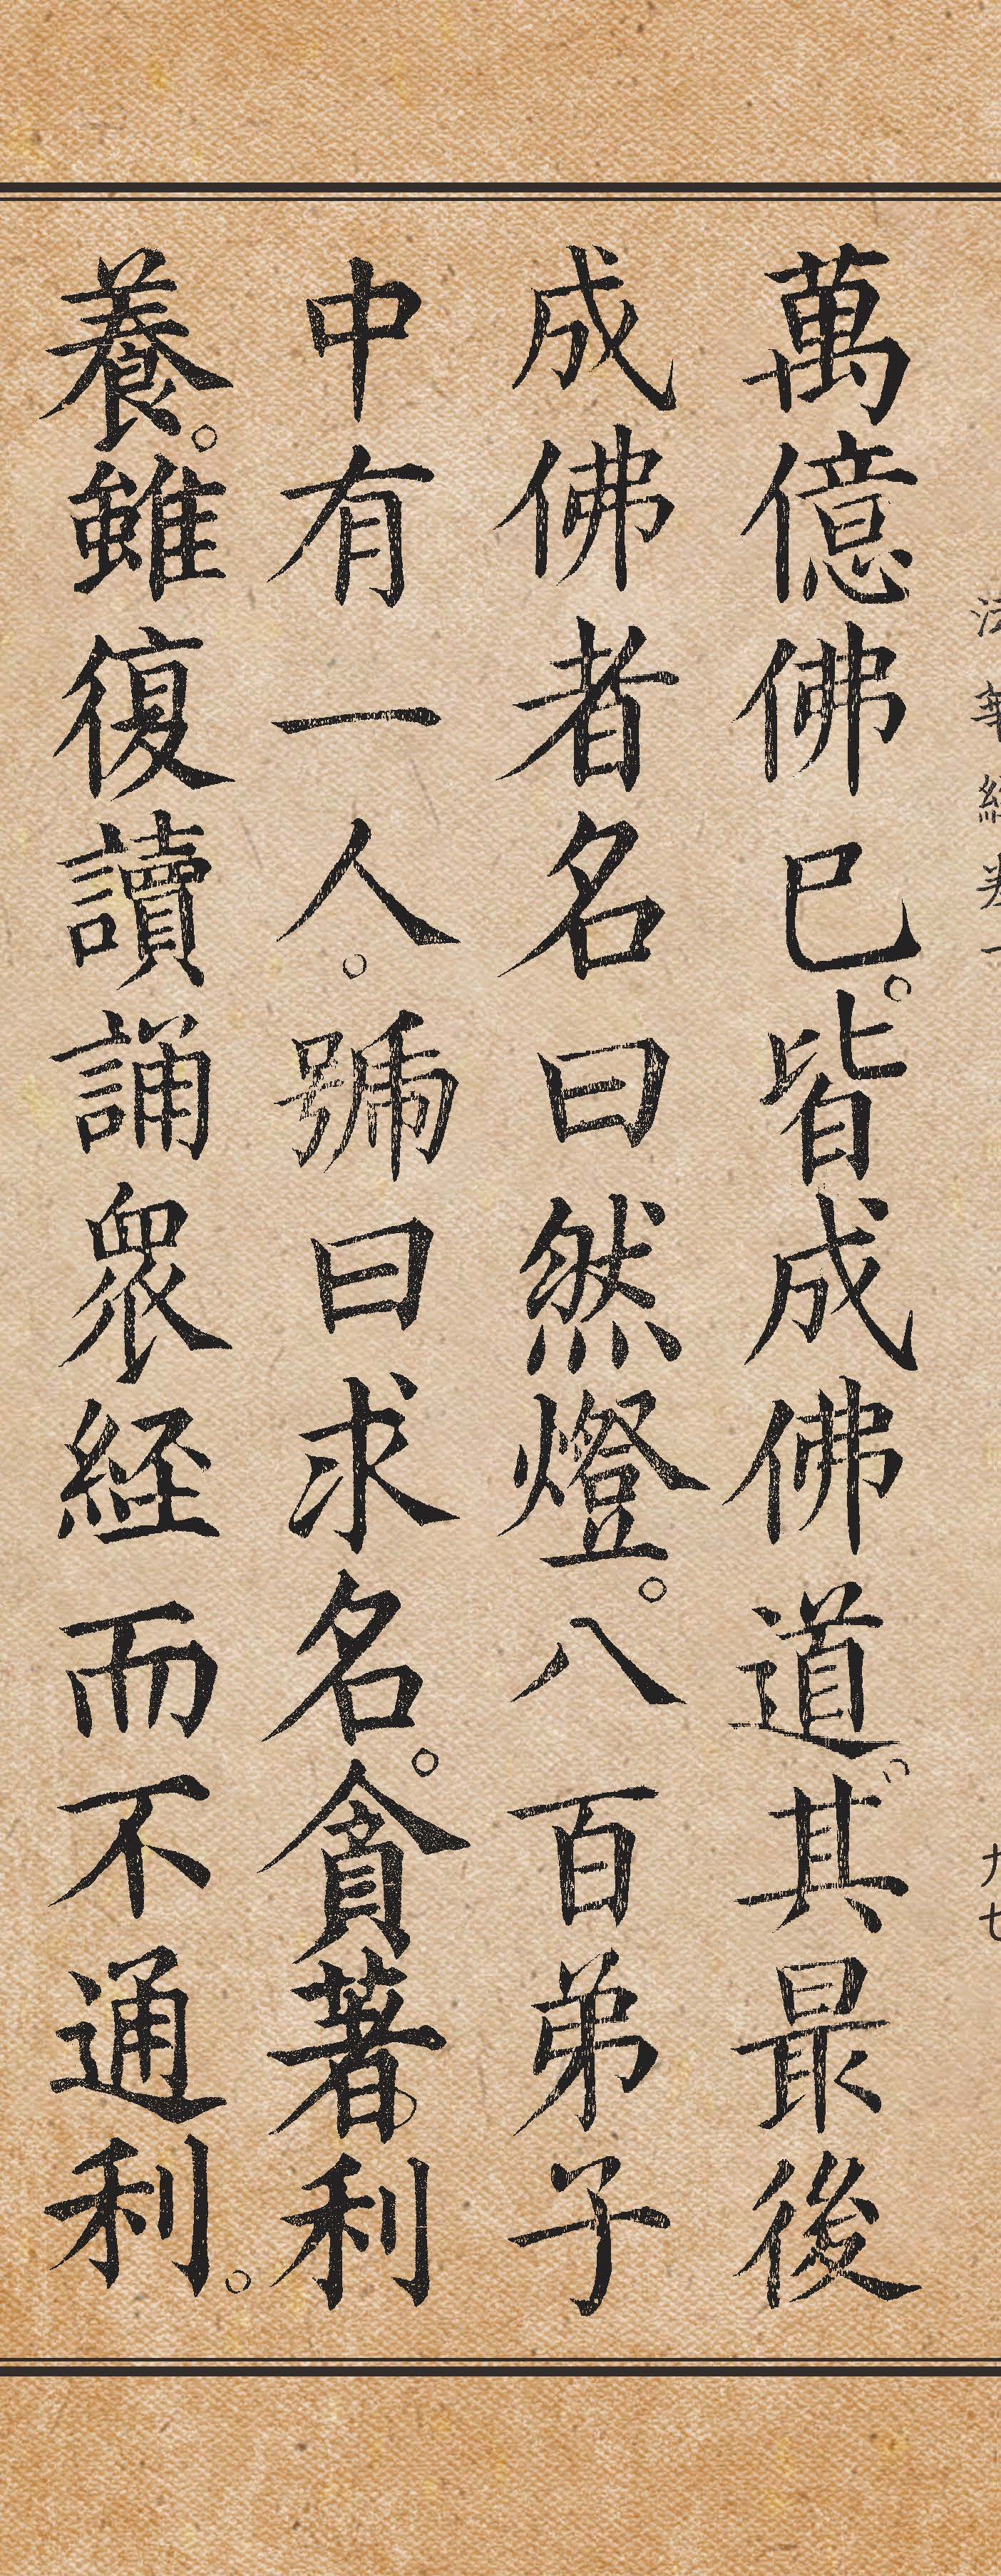 法華經卷一 九七
萬億佛已。皆成佛道。其最後
成佛者名曰然燈。八百弟子
中有一人。號曰求名。貪著利
養。雖復讀誦眾經而不通利。